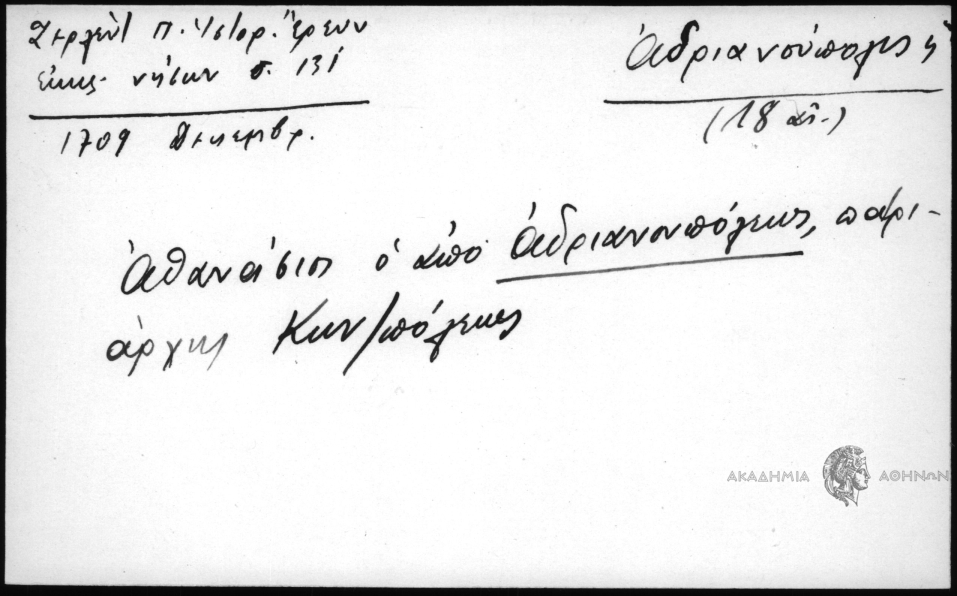 Ζερλέντ Π. Ἱστορ. Ἔρευν
Ἐκκλ. νήσων σ. 131
1709 Δεκεμβρ.
Ἀδριανούπολις ἡ
(18 αἰ.)
Ἀθανάσιος ὁ ἀπὸ Ἀδριανουπόλεως, πατρι-
άρχης Κων/πόλεως
ΑΚΑΔΗΜΙΑ ΑΘΗΝΩΝ